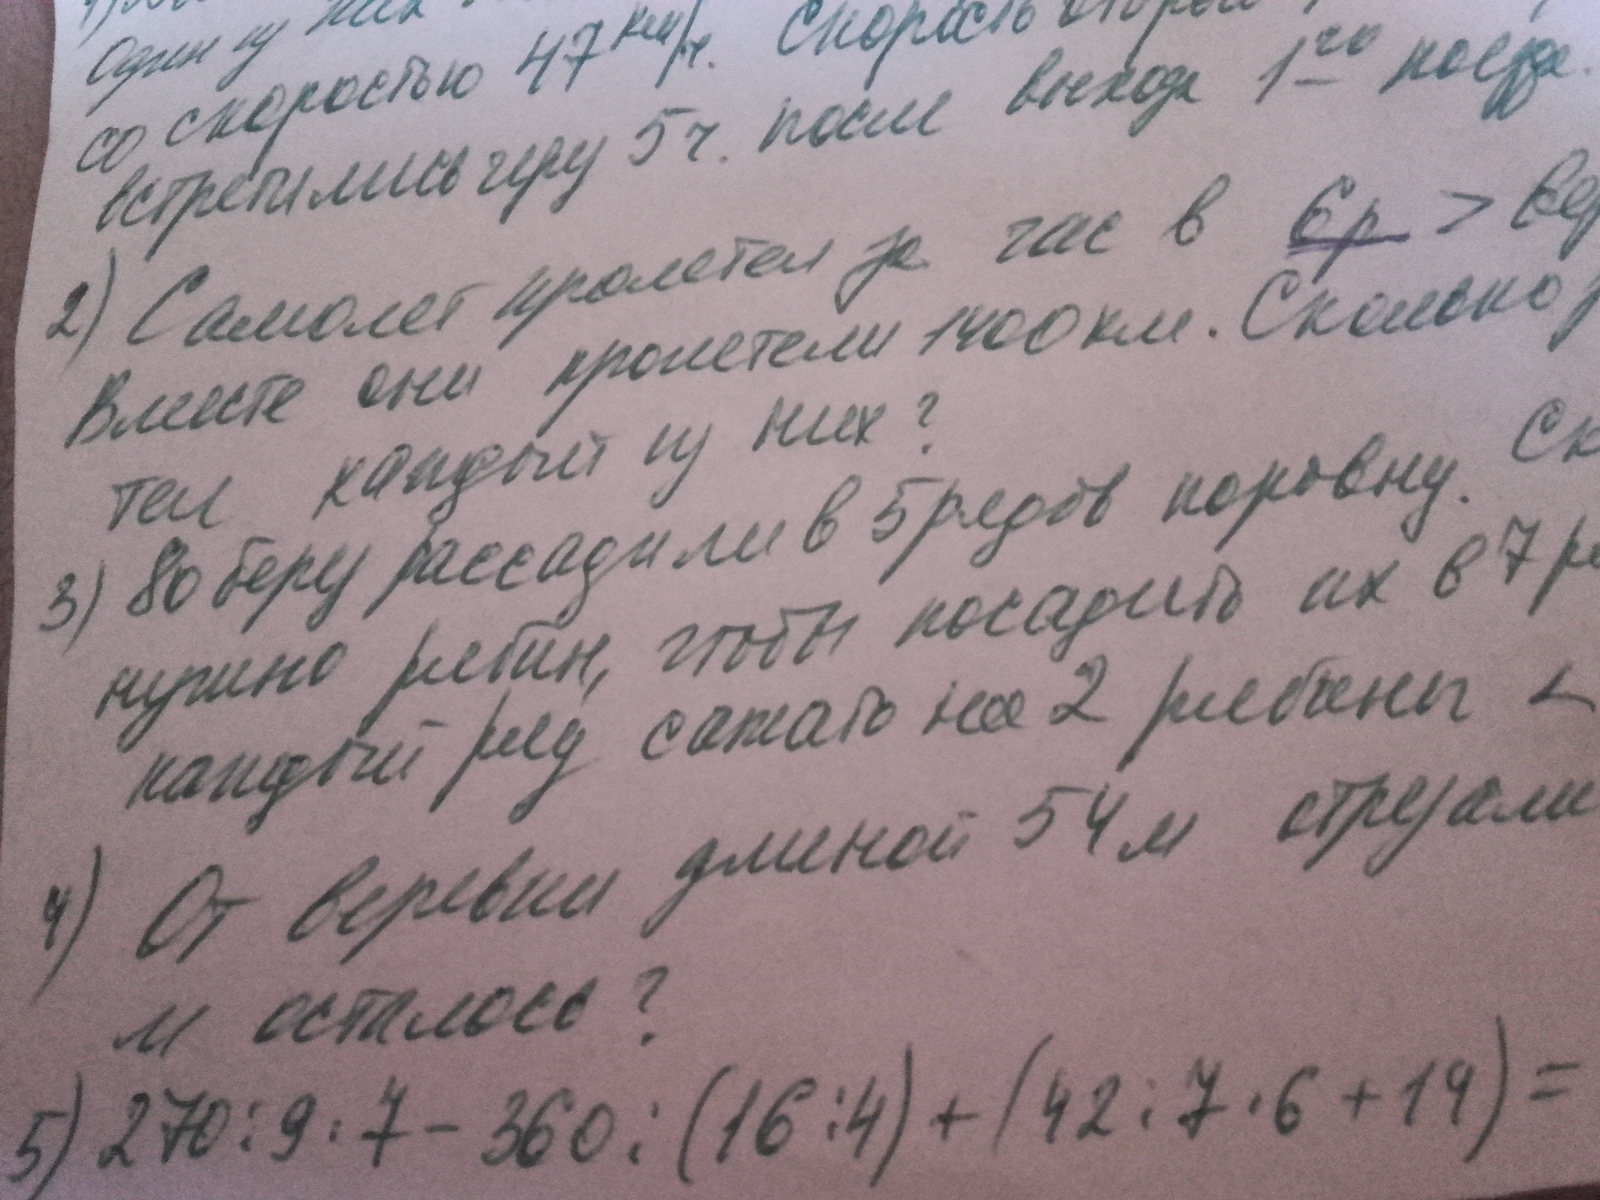 Один из них
со скоростью 47 км/ч. Скорость второй
встретились через 5 ч. после выхода 1го поезда.
2) Самолет пролетел за час в 6р > вер
Вместе они пролетели 1400 км. Сколько
тел каждый из них?
3) 80 берез рассадили в 5 рядов поровну. Ск
нужно рябин, чтобы посадить их в 7 ря
каждый ряд сажать на 2 рябины <
4) От веревки длиной 54 м отрезали
м осталось?
5) 270:9·7-360:(16:4)+(42:7·6+19)=